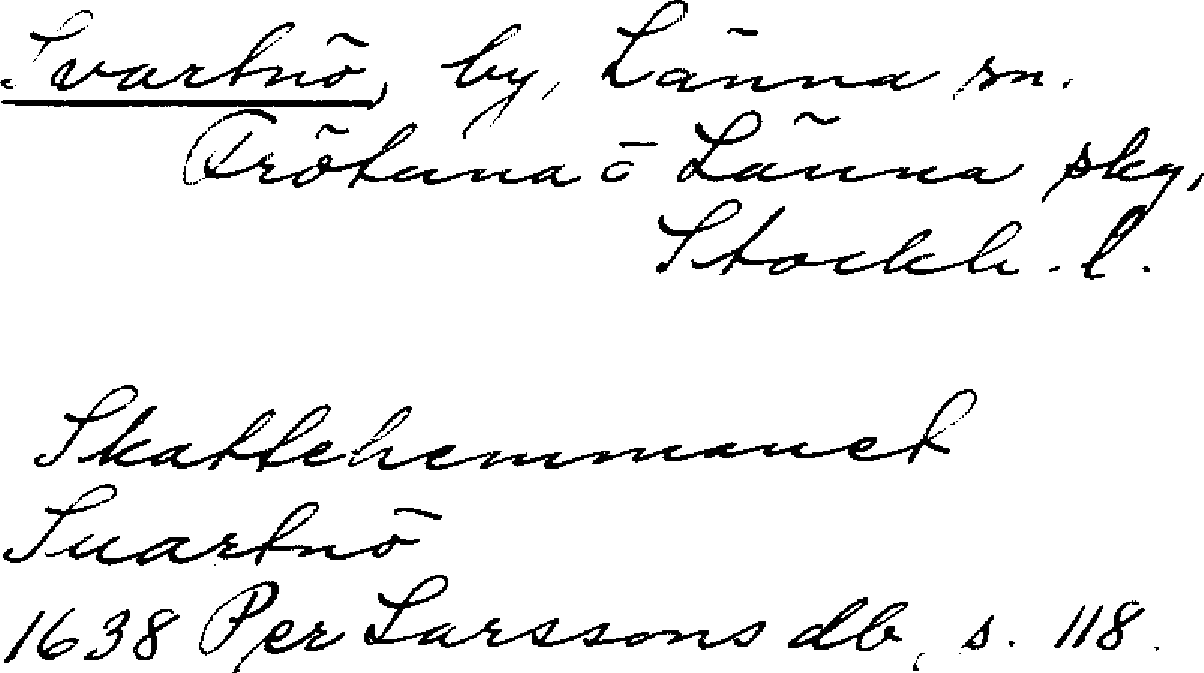 Svartnö, by, Länna sn.
Frötuna o Länna skg,
Stockh. l.
Skattehemmanet
Suartnö
1638 Per Larssons db, s. 118.